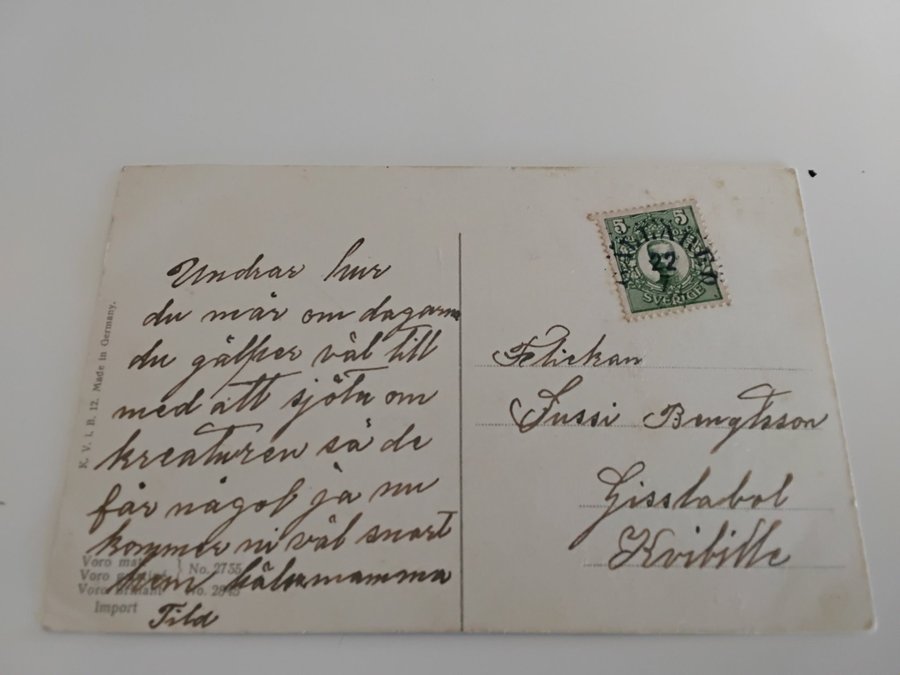 Undrar hur
du mår om dagarna
du gälper väl till
med att sjöta om
kreaturen så de
får något ja nu
kommer ni väl snart
hem hälsa mamma
Tild
K. V. i. B. 12. Made in Germany.
Voro
Voro
Voro Brillant
No. 2755
No.
Import
5 5
22
SVERIGE
Flickan
Sussi Bengtsson
Gisslabol
Kvibille